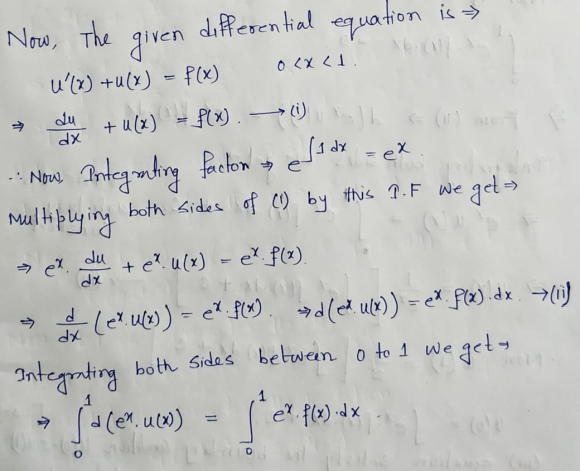 Now, The given differential equation is ⇒
u'(x) + u(x) = f(x) 0 < x < 1.
⇒ du/dx + u(x) = f(x). → (i)
∴ Now Integrating factor ⇒ e^∫1 dx = e^x.
Multiplying both sides of (1) by this I.F we get ⇒
⇒ e^x. du/dx + e^x. u(x) = e^x. f(x).
⇒ d/dx (e^x. u(x)) = e^x. f(x). ⇒ d(e^x. u(x)) = e^x. f(x). dx. → (ii)
Integrating both sides between 0 to 1 we get →
⇒ ∫_0^1 d(e^x. u(x)) = ∫_0^1 e^x. f(x). dx.